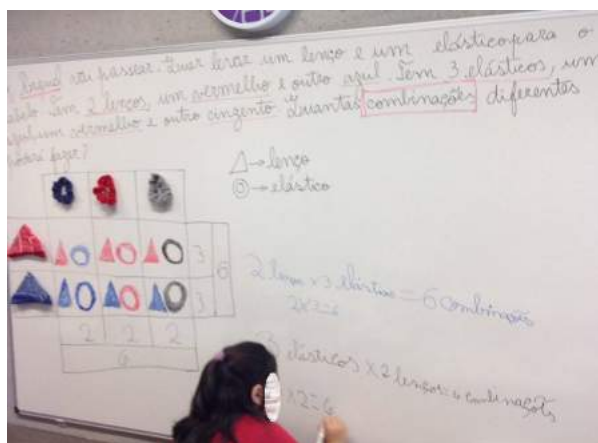 vai passear. Quer levar um lenço e um elástico para o
cabelo. Tem 2 lenços, um vermelho e outro azul. Tem 3 elásticos, um
azul, um vermelho e outro cinzento. Quantas combinações diferentes
poderá fazer?
△→lenço
◎→elástico
3
6
3
2 2 2
6
2 lenços x 3 elásticos = 6 combinações
2x3=6
3 elásticos x 2 lenços = 6 combinações
x2=6